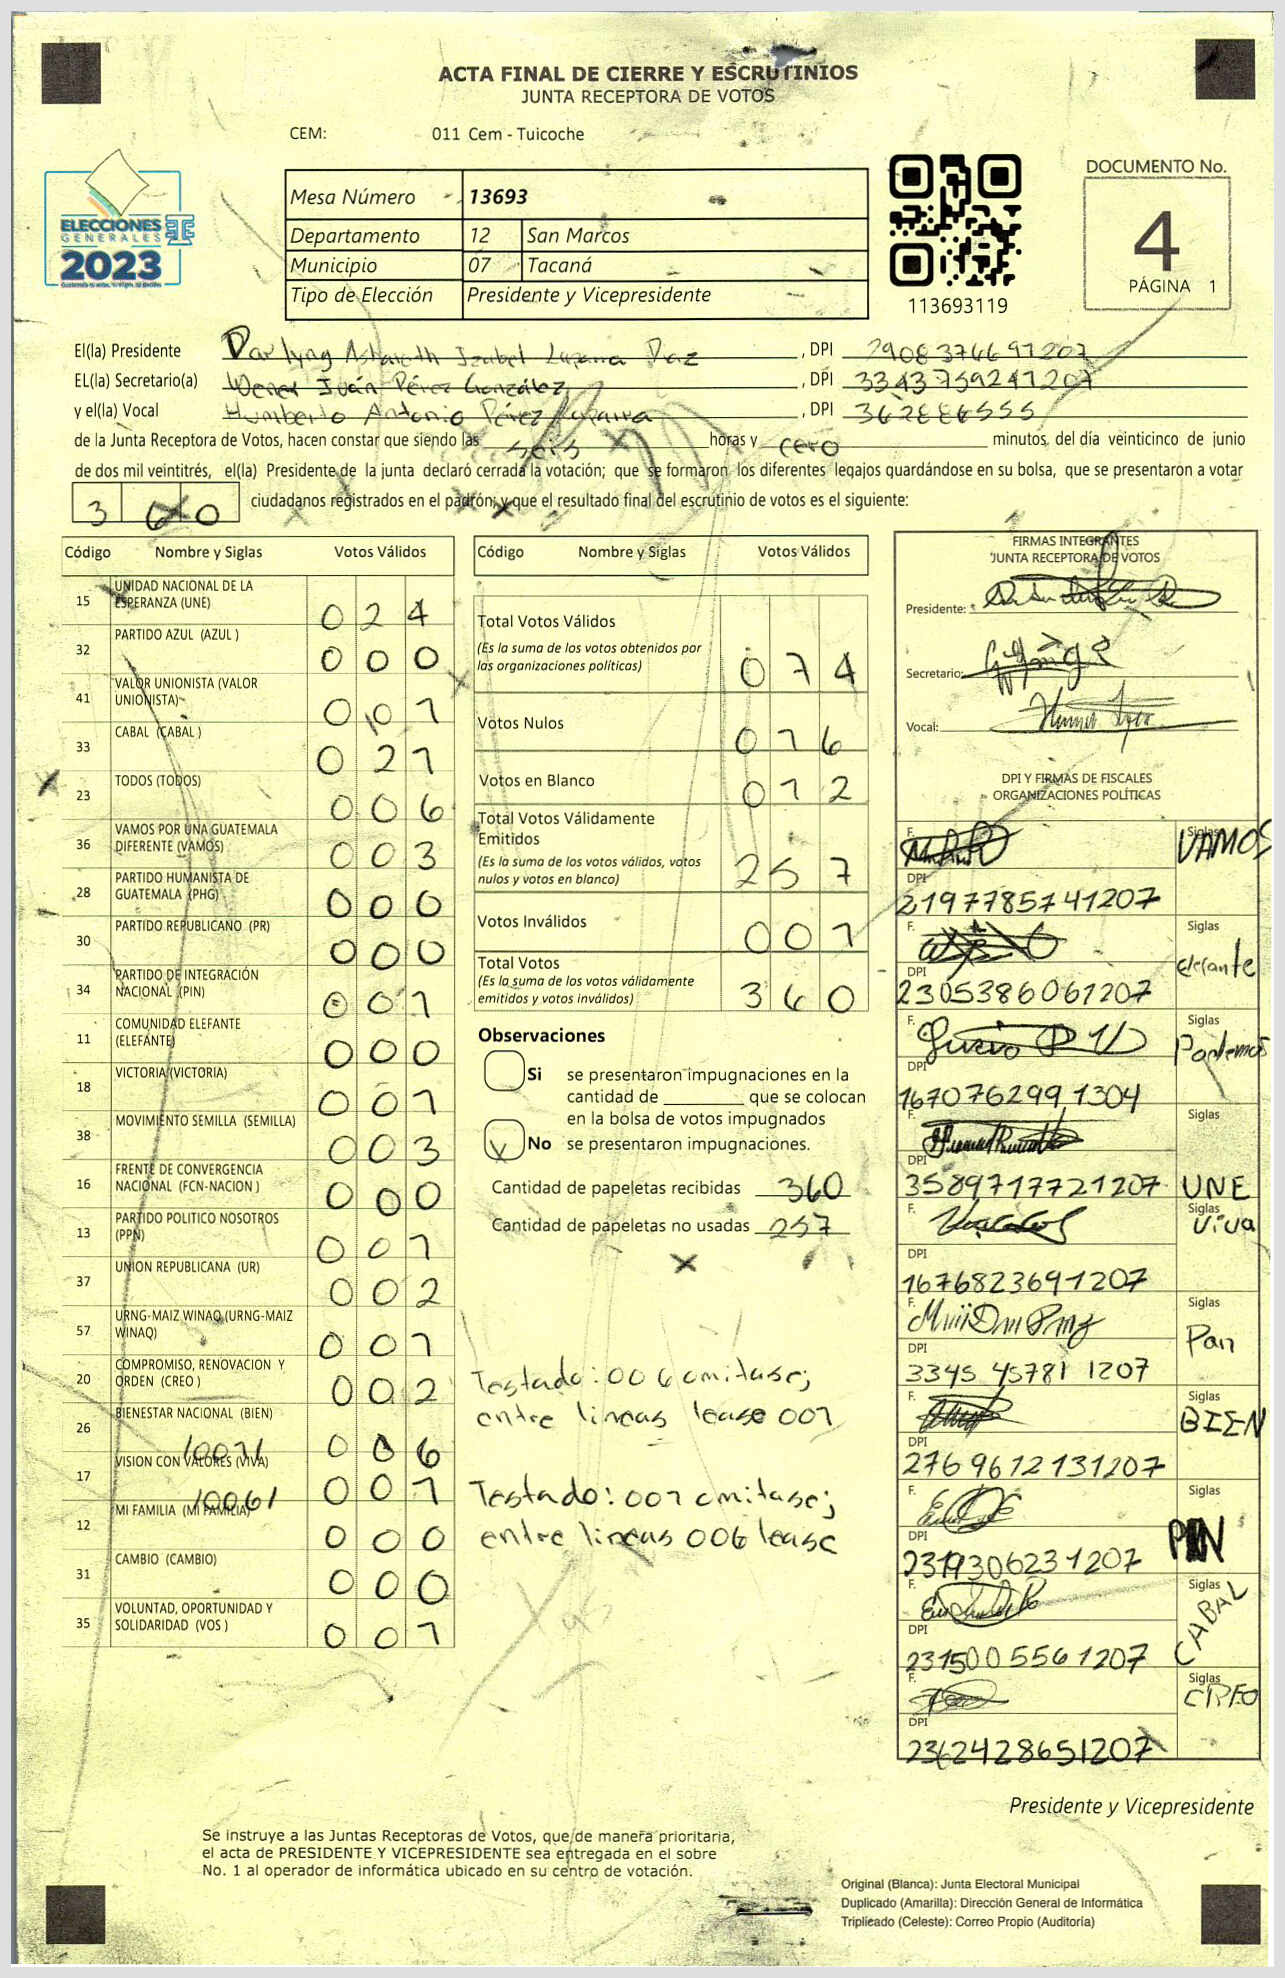 ACTA FINAL DE CIERRE Y ESCRUTINIOS
JUNTA RECEPTORA DE VOTOS
CEM: 011 Cem - Tuicoche
ELECCIONES
GENERALES
2023
Mesa Número 13693
Departamento 12 San Marcos
Municipio 07 Tacaná
Tipo de Elección Presidente y Vicepresidente
113693119
DOCUMENTO No.
4
PÁGINA 1
El(la) Presidente Izabel , DPI 2908376697207
EL(la) Secretario(a) Wener Iván Pérez González , DPI 3343759241207
y el(la) Vocal Humberto Antonio Pérez , DPI 362886555
de la Junta Receptora de Votos, hacen constar que siendo las seis horas y cero minutos del día veinticinco de junio
de dos mil veintitrés, el(la) Presidente de la junta declaró cerrada la votación; que se formaron los diferentes legajos guardándose en su bolsa, que se presentaron a votar
3 6 0 ciudadanos registrados en el padrón; y que el resultado final del escrutinio de votos es el siguiente:
Código Nombre y Siglas Votos Válidos
15 UNIDAD NACIONAL DE LA ESPERANZA (UNE) 0 2 4
32 PARTIDO AZUL (AZUL ) 0 0 0
41 VALOR UNIONISTA (VALOR UNIONISTA) 0 0 1
33 CABAL (CABAL ) 0 2 1
23 TODOS (TODOS) 0 0 6
36 VAMOS POR UNA GUATEMALA DIFERENTE (VAMOS) 0 0 3
28 PARTIDO HUMANISTA DE GUATEMALA (PHG) 0 0 0
30 PARTIDO REPUBLICANO (PR) 0 0 0
34 PARTIDO DE INTEGRACIÓN NACIONAL (PIN) 0 0 1
11 COMUNIDAD ELEFANTE (ELEFANTE) 0 0 0
18 VICTORIA (VICTORIA) 0 0 1
38 MOVIMIENTO SEMILLA (SEMILLA) 0 0 3
16 FRENTE DE CONVERGENCIA NACIONAL (FCN-NACION ) 0 0 0
13 PARTIDO POLITICO NOSOTROS (PPN) 0 0 1
37 UNION REPUBLICANA (UR) 0 0 2
57 URNG-MAIZ WINAQ (URNG-MAIZ WINAQ) 0 0 1
20 COMPROMISO, RENOVACION Y ORDEN (CREO ) 0 0 2
26 BIENESTAR NACIONAL (BIEN) 0 0 6
10071
17 VISION CON VALORES (VIVA) 0 0 1
10061
12 MI FAMILIA (MI FAMILIA) 0 0 0
31 CAMBIO (CAMBIO) 0 0 0
35 VOLUNTAD, OPORTUNIDAD Y SOLIDARIDAD (VOS ) 0 0 1
Código Nombre y Siglas Votos Válidos
Total Votos Válidos
(Es la suma de los votos obtenidos por
las organizaciones políticas) 0 7 4
Votos Nulos 0 1 6
Votos en Blanco 0 1 2
Total Votos Válidamente
Emitidos
(Es la suma de los votos válidos, votos
nulos y votos en blanco) 2 5 7
Votos Inválidos 0 0 1
Total Votos
(Es la suma de los votos válidamente
emitidos y votos inválidos) 3 6 0
Observaciones
Si se presentaron impugnaciones en la
cantidad de ________ que se colocan
en la bolsa de votos impugnados
No se presentaron impugnaciones.
Cantidad de papeletas recibidas 360
Cantidad de papeletas no usadas 257
Testado: 006 omitase;
entre lineas lease 001
Testado: 001 omitase;
entre lineas 006 lease
FIRMAS INTEGRANTES
JUNTA RECEPTORA DE VOTOS
Presidente:
Secretario:
Vocal:
DPI Y FIRMAS DE FISCALES
ORGANIZACIONES POLÍTICAS
F. Siglas VAMOS
DPI 2197785741207
F. Siglas elefante
DPI 2305386061207
F. Siglas Podemos
DPI 1670762991304
F. Siglas UNE
DPI 3589717721207
F. Siglas Viva
DPI 1676823691207
F. Siglas Pan
DPI 3345 45781 1207
F. Siglas BIEN
DPI 2769612131207
F. Siglas PIN
DPI 2319306231207
F. Siglas CABAL
DPI 2315005561207
F. Siglas CREO
DPI 2362428651207
Presidente y Vicepresidente
Se instruye a las Juntas Receptoras de Votos, que de manera prioritaria,
el acta de PRESIDENTE Y VICEPRESIDENTE sea entregada en el sobre
No. 1 al operador de informática ubicado en su centro de votación.
Original (Blanca): Junta Electoral Municipal
Duplicado (Amarilla): Dirección General de Informática
Triplicado (Celeste): Correo Propio (Auditoría)